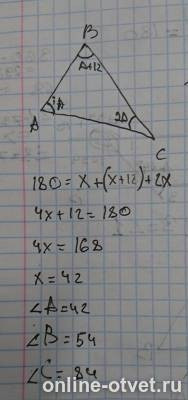 B
A+12
A
A
2A
C
180=x+(x+12)+2x
4x+12=180
4x=168
x=42
∠A=42
∠B=54
∠C=84
online-otvet.ru